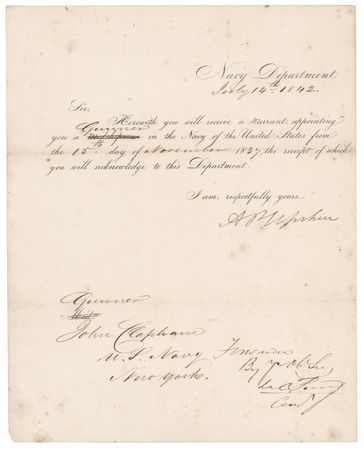 Navy Department
July 14th. 1842.
Sir,
Herewith you will receive a warrant, appointing
Gunner
you a Midshipman in the Navy of the United States from
the 15th day of November 1837, the receipt of which
you will acknowledge to this Department.
I am, respectfully yours
A P Upshur
Gunner
John Clapham
U. S. Navy
New York.
Forwarded
By